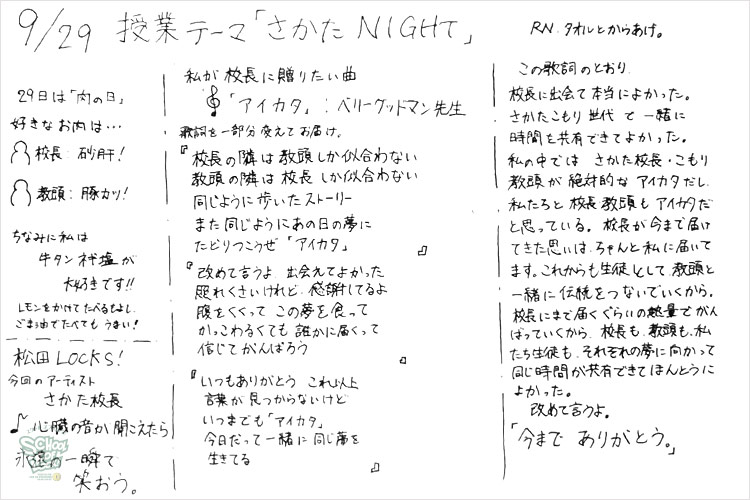 9/29 授業テーマ「さかた NIGHT」
RN.タオルとからあげ。
29日は「肉の日」
好きなお肉は…
校長:砂肝!
教頭:豚カツ!
ちなみに私は
牛タン ネギ塩が
大好きです!!
レモンをかけてたべるもよし、
ごま油でたべても うまい!
松田LOCKS!
今回のアーティスト
さかた校長
♪心臓の音が聞こえたら
永遠の一瞬で
笑おう。
私が 校長に贈りたい曲
「アイカタ」:ベリーグッドマン先生
歌詞を一部分変えてお届け。
『校長の隣は教頭しか似合わない
教頭の隣は校長しか似合わない
同じように歩いたストーリー
また同じようにあの日の夢に
たどりつこうぜ「アイカタ」』
『改めて言うよ 出会えてよかった
照れくさいけれど、感謝してるよ
腹をくくって この夢を食って
かっこわるくても 誰かに届くって
信じてがんばろう』
『いつもありがとう これ以上
言葉が見つからないけど
いつまでも「アイカタ」
今日だって一緒に同じ夢を
生きてる』
この歌詞のとおり、
校長に出会えて本当によかった。
さかたこもり世代で一緒に
時間を共有できてよかった。
私の中では さかた校長・こもり
教頭が絶対的なアイカタだし、
私たちと校長教頭もアイカタだ
と思っている。校長が今まで届け
てきた思いは、ちゃんと私に届いて
ます。これからも生徒として、教頭と
一緒に伝統をつないでいくから。
校長にまで届くぐらいの熱量でがん
ばっていくから、校長も、教頭も、私
たち生徒も、それぞれの夢に向かって
同じ時間が共有できてほんとうに
よかった。
改めて言うよ。
「今まで ありがとう。」
SCHOOL